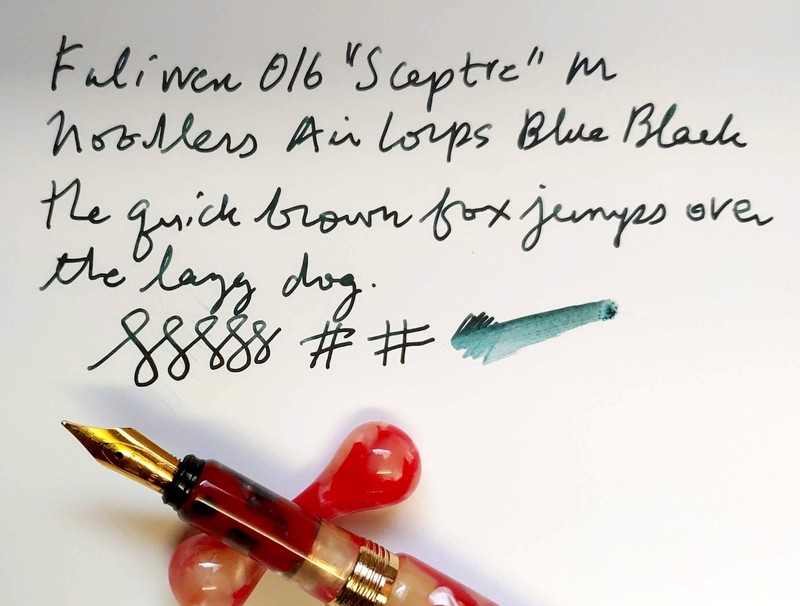 Fuliwen 016 "Sceptre" M
Noodlers Air Corps Blue Black
the quick brown fox jumps over
the lazy dog.
# #